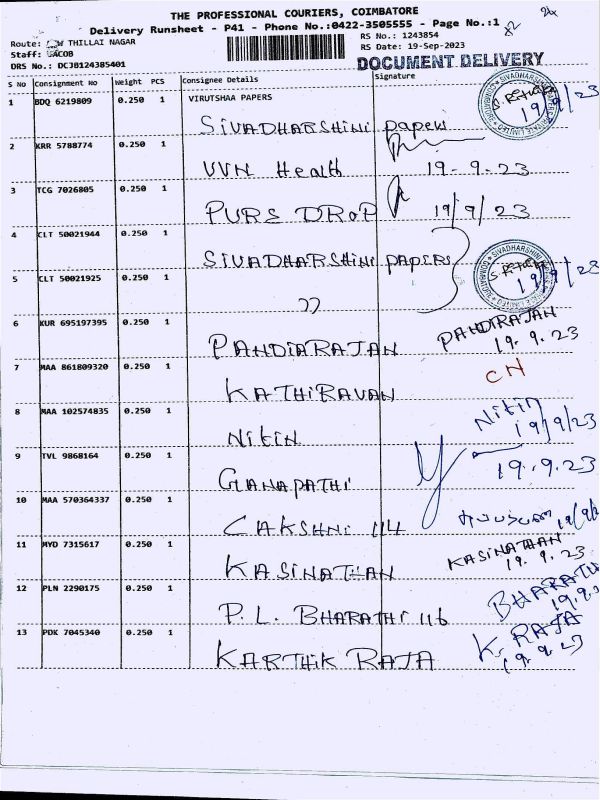 THE PROFESSIONAL COURIERS, COIMBATORE
Delivery Runsheet - P41 - Phone No.:0422-3505555 - Page No.:1
Route: THILLAI NAGAR RS No.: 1243854
Staff: RS Date: 19-Sep-2023
DRS No.: DCJB124385401 DOCUMENT DELIVERY
S No Consignment No Weight PCS Consignee Details Signature
1 BDQ 6219809 0.250 1 VIRUTSHAA PAPERS
SIVADHARSHINI papers 19/9/23
2 KRR 5788774 0.250 1
VVN Health 19-9-23
3 TCG 7026805 0.250 1
PURS DROP 19/9/23
4 CLT 50021944 0.250 1
SIVADHARSHINI PAPERS
5 CLT 50021925 0.250 1 19/9/23
〃
6 KUR 695197395 0.250 1 PANDIRAJAN
PANDIARAJAN 19.9.23
7 MAA 861809320 0.250 1 CN
KATHIRAVAN
8 MAA 102574835 0.250 1 Nitin
NITIN 19/9/23
9 TVL 9868164 0.250 1 19.9.23
GANAPATHI
10 MAA 570364337 0.250 1
CAKSHNI 114
11 MYD 7315617 0.250 1 KASINATHAN
KASINATHAN 19.9.23
12 PLN 2290175 0.250 1 BHARATH
P.L. BHARATHI 116
13 PDK 7045340 0.250 1 K. RAJA
KARTHIK RAJA 19.9.23